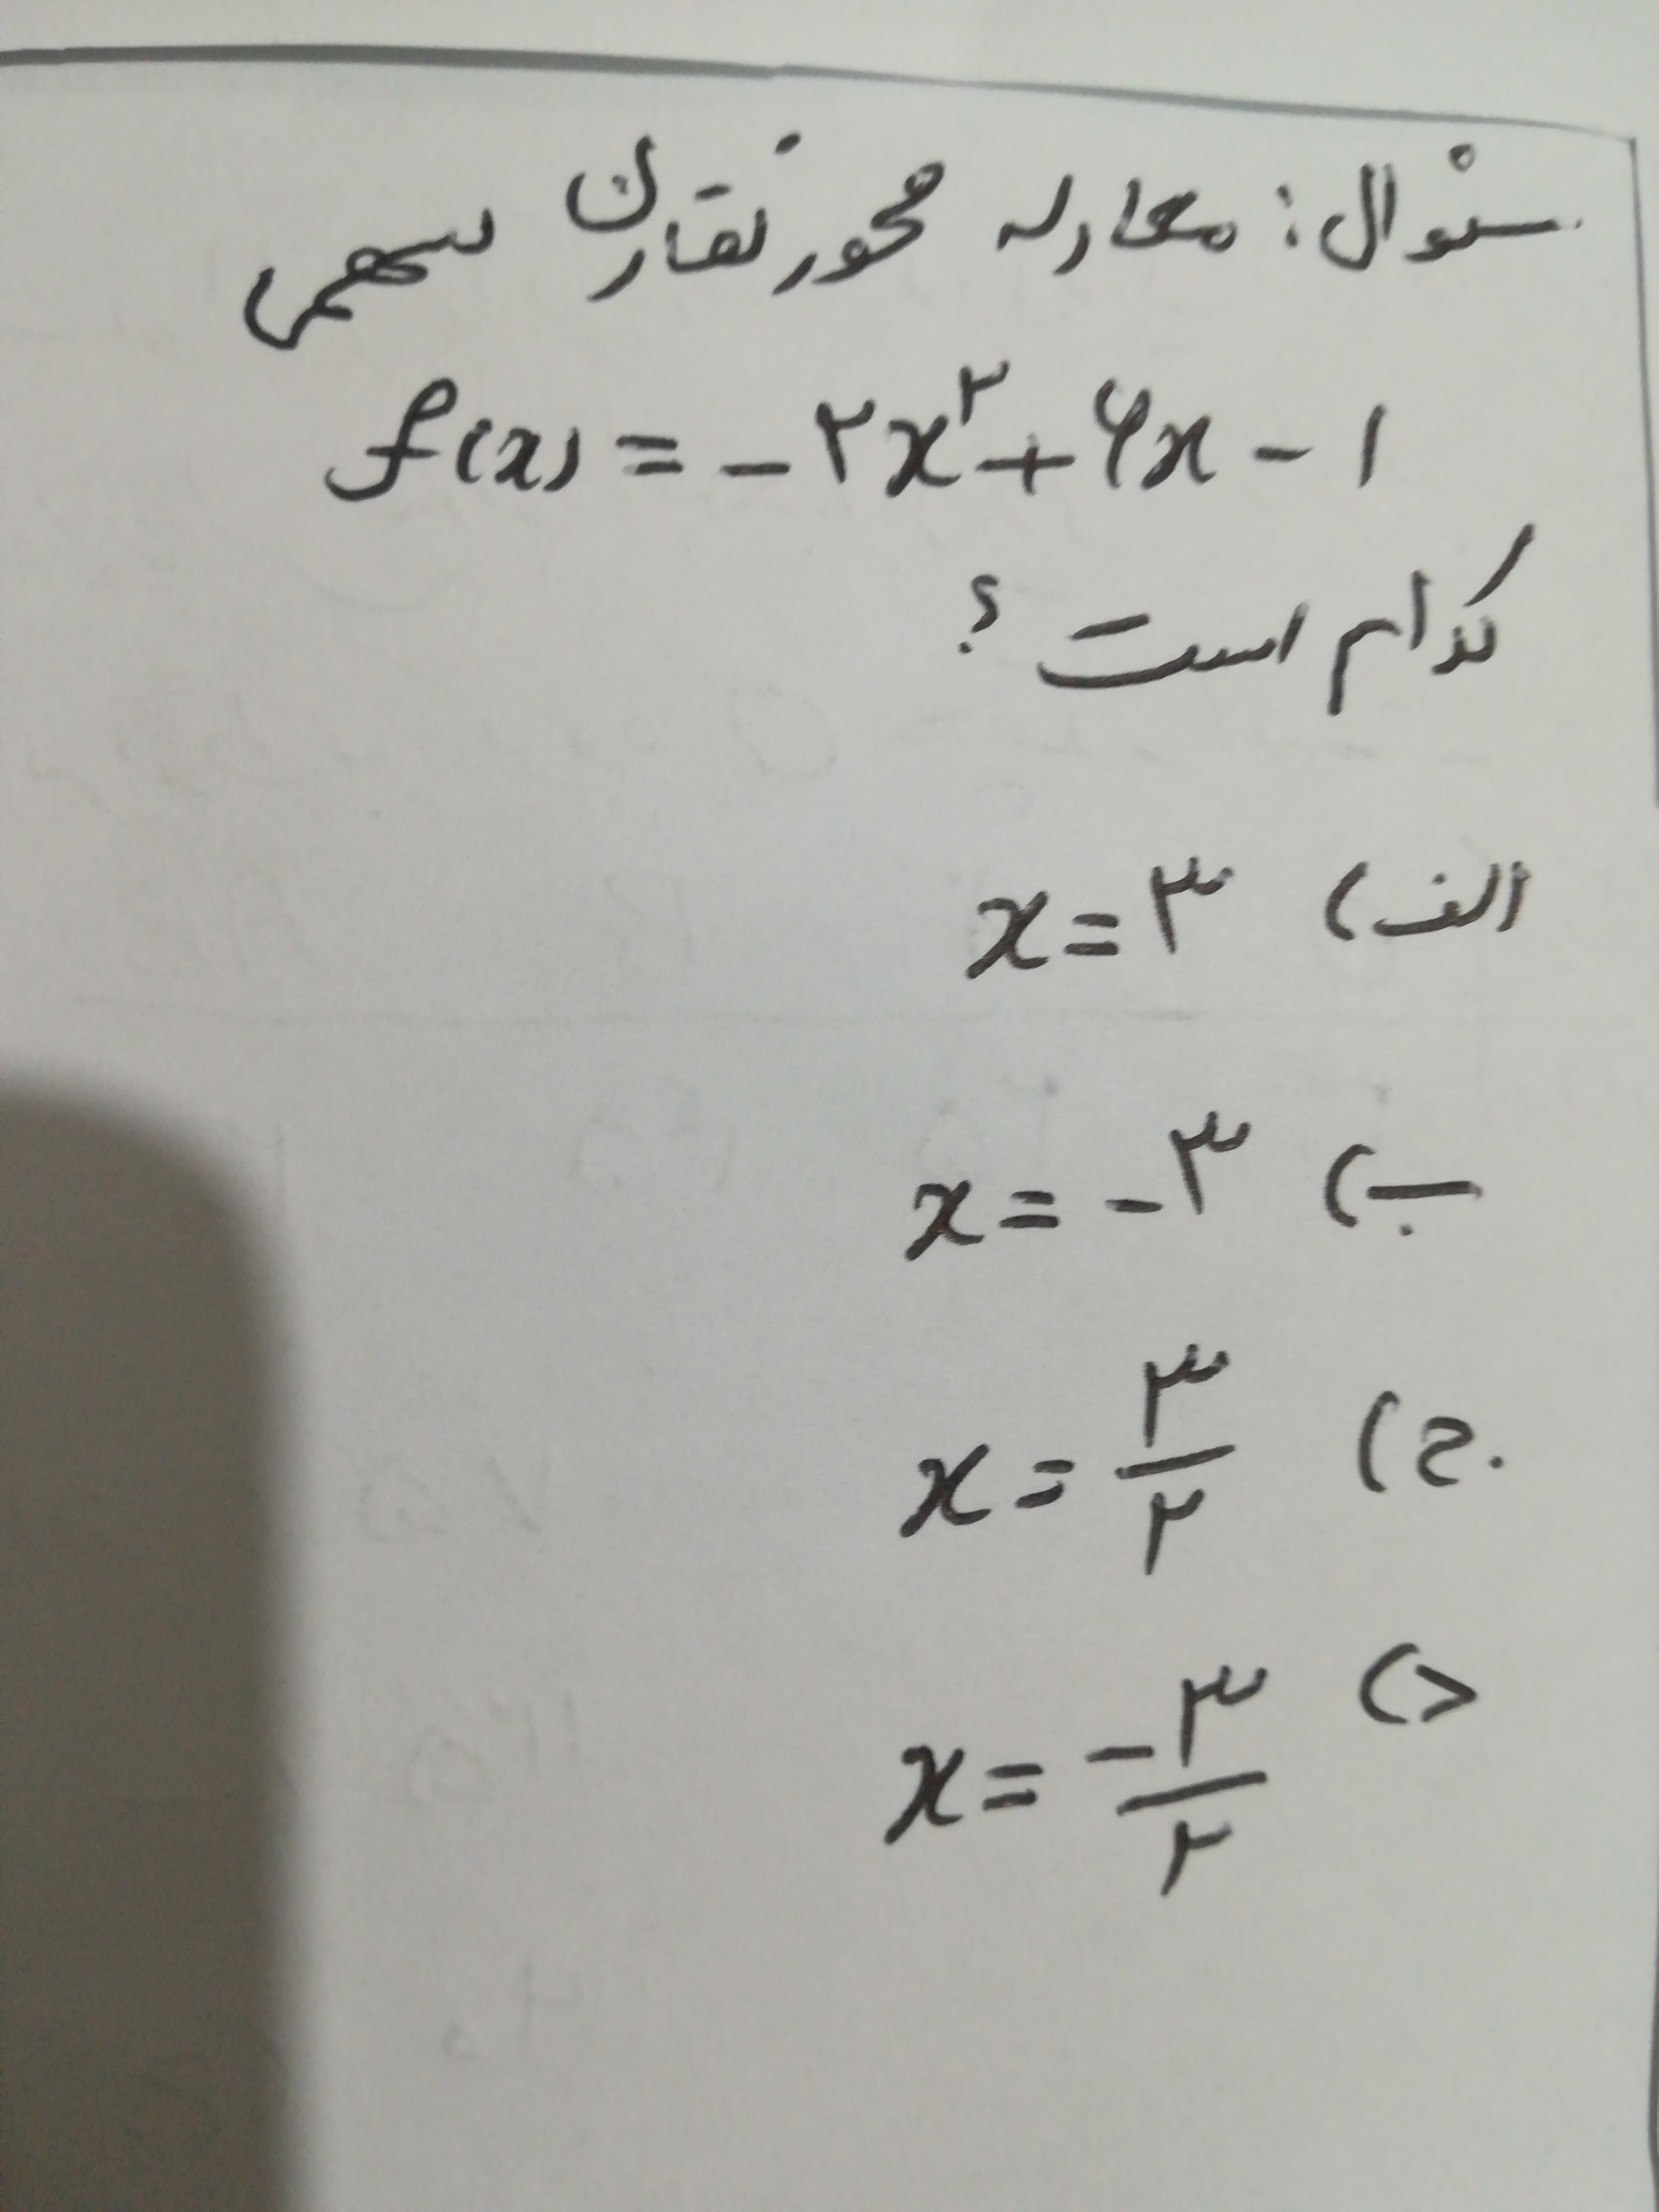 سئوال: معادله محور تقارن سهمی
f(x) = -۲x^۲ + ۶x - ۱
کدام است؟
الف) x = ۳
ب) x = -۳
ج) x = ۳/۲
د) x = -۳/۲